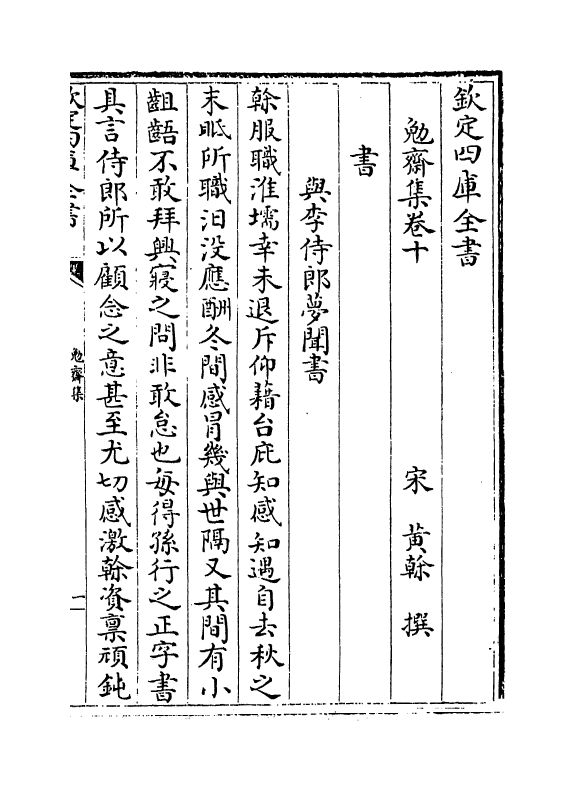 欽定四庫全書
勉齋集卷十
宋 黃榦 撰
書
與李侍郎夢聞書
榦服職淮壖幸未退斥仰藉台庇知感知遇自去秋之
末眡所職汩没應酬冬間感冒幾與世隔又其間有小
齟齬不敢拜興寢之問非敢怠也每得孫行之正字書
具言侍郎所以顧念之意甚至尤切感激榦資禀頑鈍
欽定四庫全書
勉齋集
一